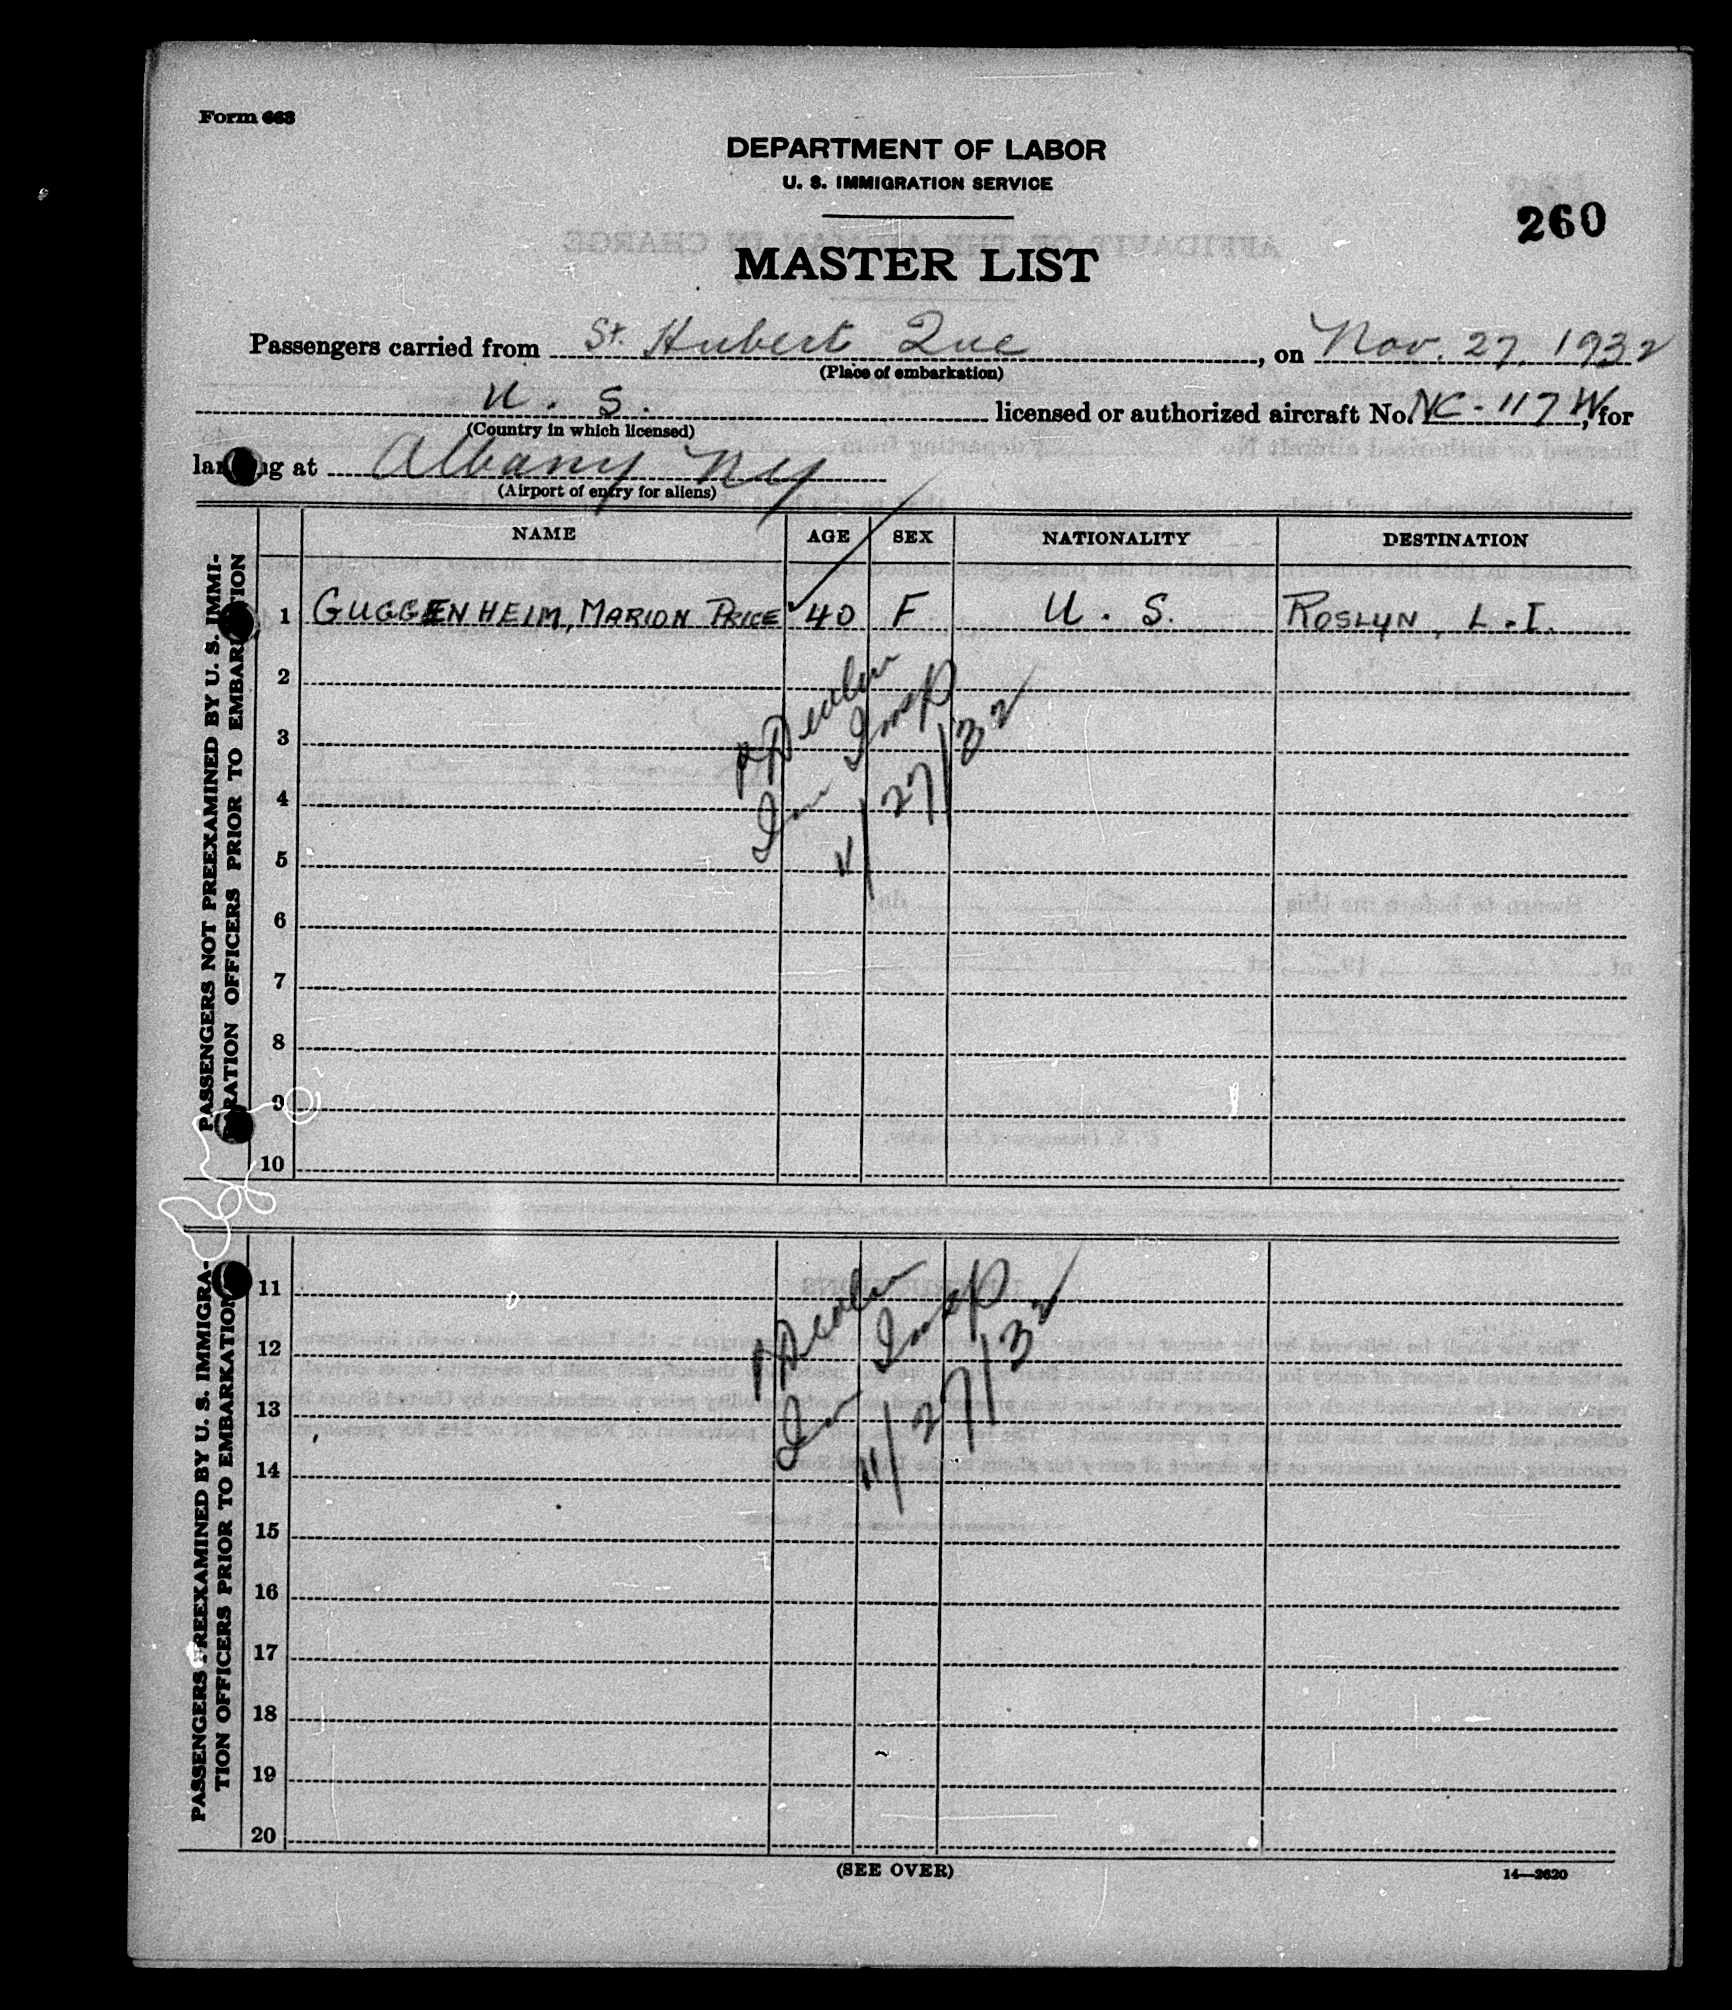 Form 663
DEPARTMENT OF LABOR
U. S. IMMIGRATION SERVICE
260
MASTER LIST
Passengers carried from St. Hubert Que, on Nov. 27, 1932
(Place of embarkation)
U. S. licensed or authorized aircraft No. NC-117W, for
(Country in which licensed)
landing at Albany NY
(Airport of entry for aliens)
NAME AGE SEX NATIONALITY DESTINATION
PASSENGERS NOT PREEXAMINED BY U. S. IMMI-
GRATION OFFICERS PRIOR TO EMBARKATION
1 GUGGENHEIM, MARION PRICE 40 F U. S. ROSLYN, L.I.
2
3
4
5
6
7
8
9
10
Imm Insp
11/27/32
PASSENGERS PREEXAMINED BY U. S. IMMIGRA-
TION OFFICERS PRIOR TO EMBARKATION
11
12
13
14
15
16
17
18
19
20
Imm Insp
11/27/32
(SEE OVER)
14—2620